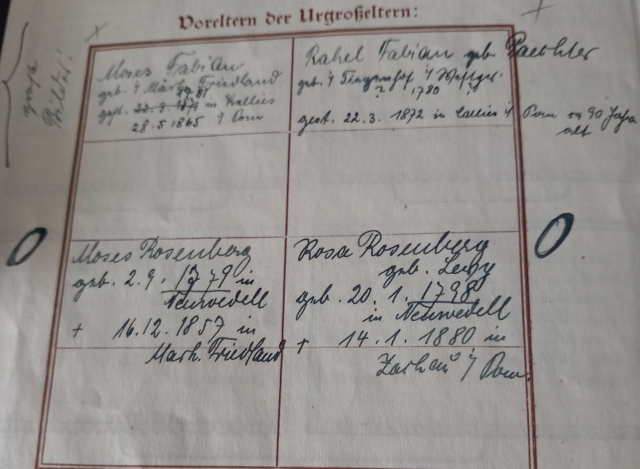 Voreltern der Urgroßeltern:
große
Bilder!
Moses Fabian
geb. i/ Märk. Friedland
1781
gest. 22.3. in Kallies
28.5.1865 i/ Pom
Rahel Fabian geb. Paechter
geb. i/
? 1780
gest. 22.3. 1872 in Callies i/ Pom ca 90 Jahre
alt
Moses Rosenberg
geb. 2.9. 1779 in
Neuwedell
+ 16.12.1857 in
Märk. Friedland
Rosa Rosenberg
geb. Levy
geb. 20. 1. 1798
in Neuwedell
+ 14.1.1880 in
Zachau i/ Pom.